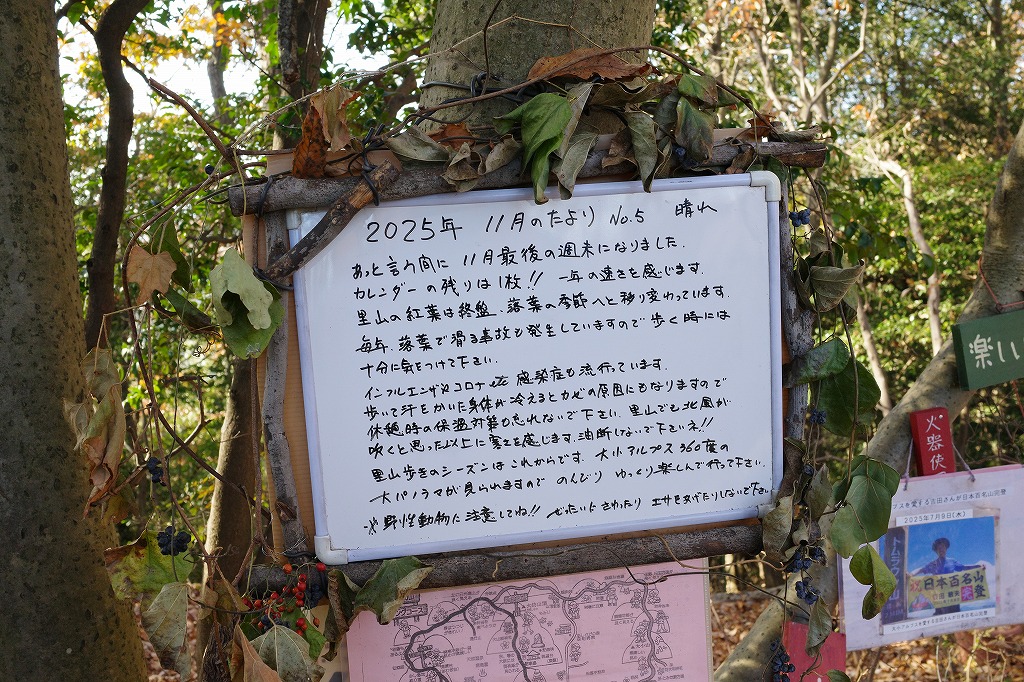 2025年 11月のたより No.5 晴れ
あっと言う間に 11月最後の週末になりました.
カレンダーの残りは1枚!! 一年の速さを感じます.
里山の紅葉は終盤、落葉の季節へと移り変わっています.
毎年、落葉で滑る事故も発生していますので歩く時には
十分に気をつけて下さい.
インフルエンザやコロナ 感染症も流行っています.
歩いて汗をかいた身体が冷えるとカゼの原因にもなりますので
休憩時の保温対策も忘れないで下さい. 里山でも北風が
吹くと思った以上に寒さを感じます. 油断しないで下さいネ!!
里山歩きのシーズンはこれからです. 大小アルプス 360度の
大パノラマが見られますので のんびり ゆっくり楽しんで行って下さい.
※ 野性動物に注意してね!! ぜったいにさわったり エサをあげたりしないで下さい
楽しい
火器使
プスを愛する吉田さんが日本百名山完登
2025年7月9日(水)
日本百名山